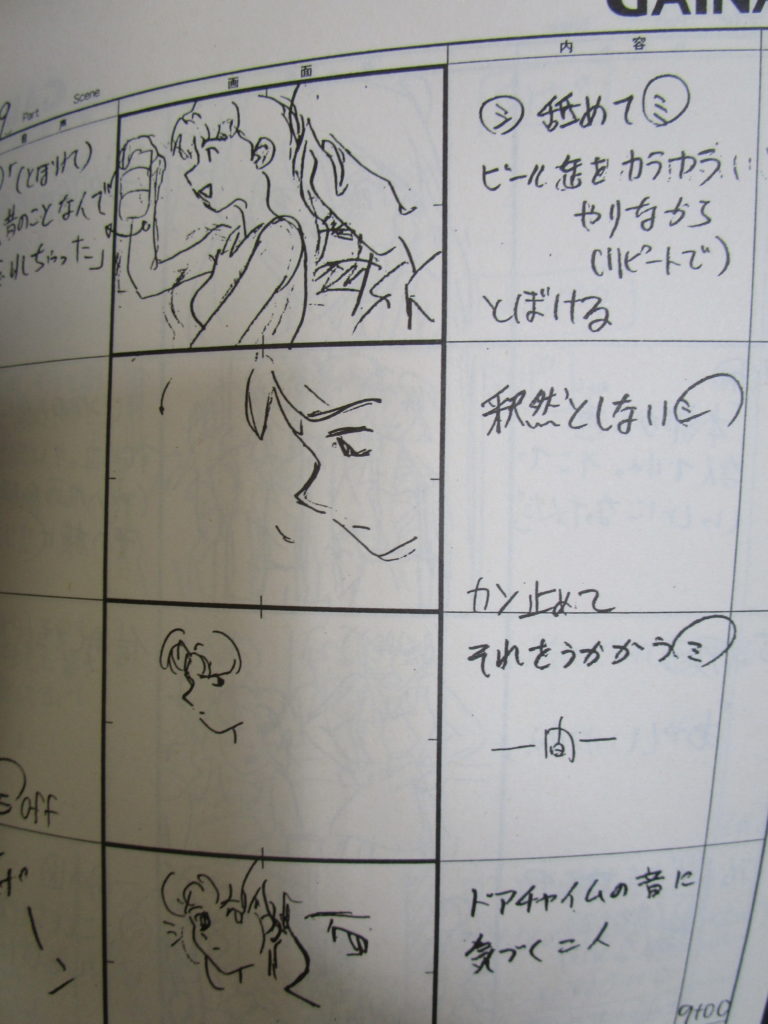 GAINA
Part
Scene
画面
内容
「(とぼけて)
昔のことなんで
忘れちゃった」
シ 舐めて ミ
ビール缶をカラカラ
やりながら
(リピートで)
とぼける
釈然としない ミ
カン止めて
それをうかがう ミ
—間—
off
ドアチャイムの音に
気づく二人
9+00